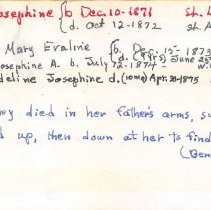 osephine b Dec. 10-1871 St. L
d. Oct 12-1872 St. A
Mary Evaline b. Dec. 15- 1873
d. June 23
osephine A. b. July 12-1874
deline Josephine d. (10 mo) Apr 30-1875
ey died in her father's arms, su
d up, then down at her to find
(Ben